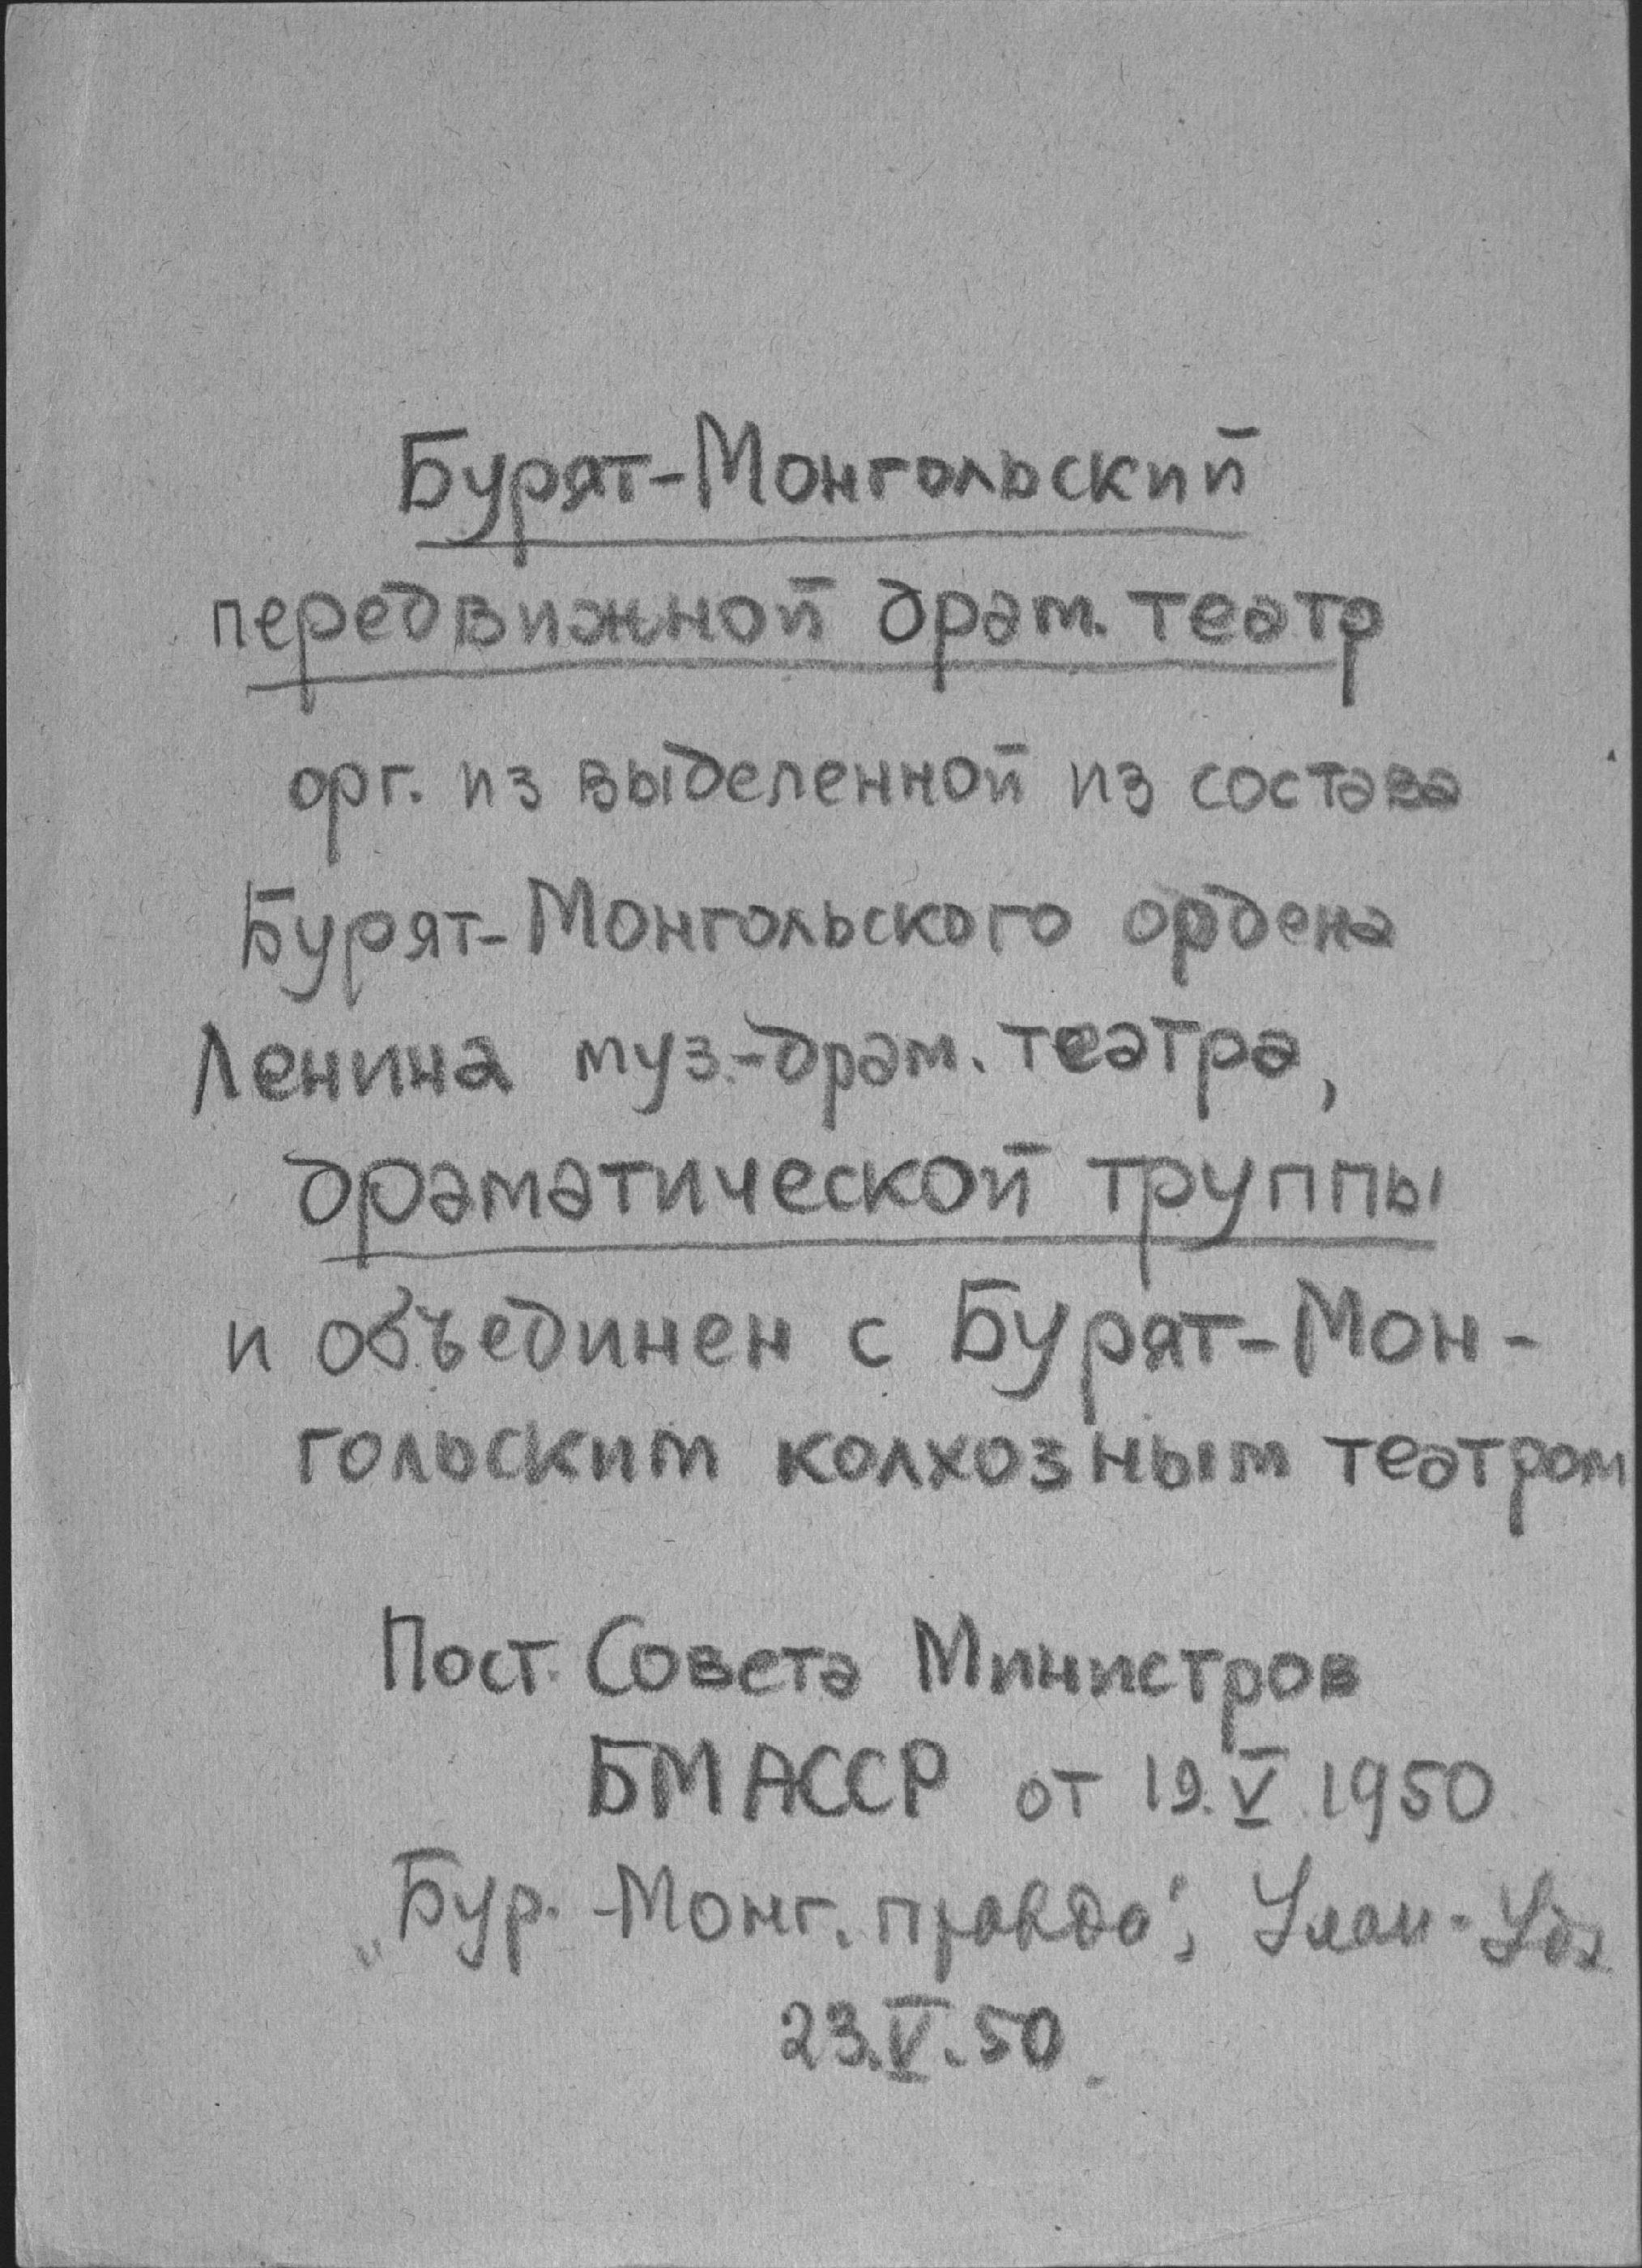 Бурят-Монгольский
передвижной драм. театр
орг. из выделенной из состава
Бурят-Монгольского ордена
Ленина муз.-драм. театра,
драматической труппы
и объединен с Бурят-Мон-
гольским колхозным театром
Пост. Совета Министров
БМАССР от 19.V.1950
„Бур.-Монг. правда“, Улан-Удэ
23.V.50.